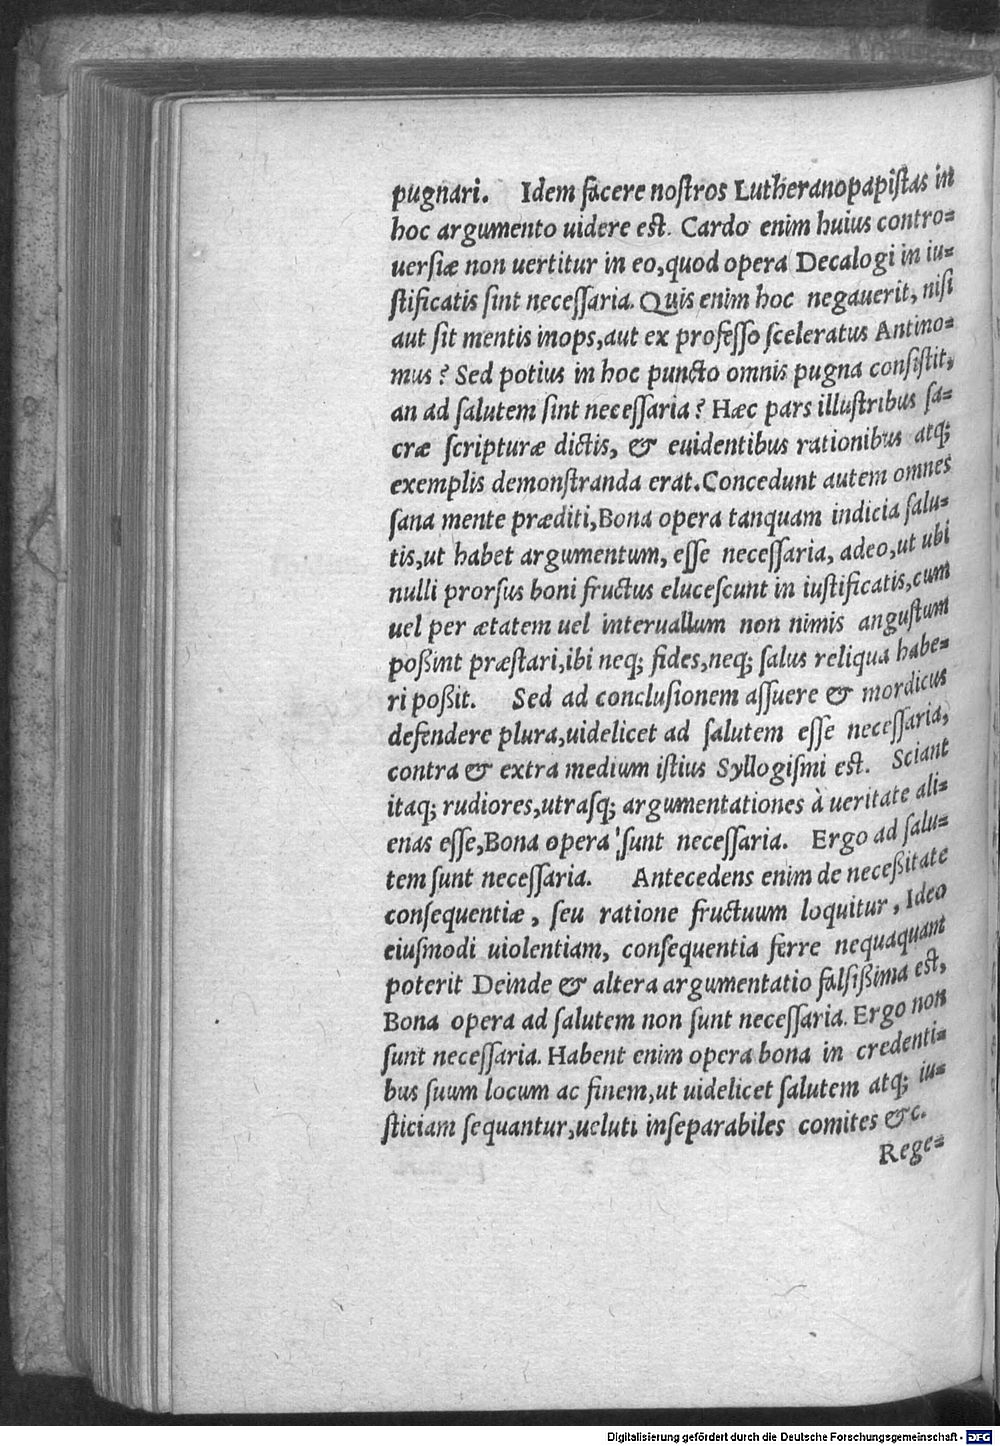 pugnari. Idem facere nostros Lutheranopapistas in
hoc argumento uidere est. Cardo enim huius contro=
uersiæ non uertitur in eo,quod opera Decalogi in iu=
stificatis sint necessaria. Quis enim hoc negauerit, nisi
aut sit mentis inops,aut ex professo sceleratus Antino=
mus? Sed potius in hoc puncto omnis pugna consistit,
an ad salutem sint necessaria? Hæc pars illustribus sa=
cræ scripturæ dictis, & euidentibus rationibus atq;
exemplis demonstranda erat. Concedunt autem omnes
sana mente præditi,Bona opera tanquam indicia salu=
tis,ut habet argumentum, esse necessaria, adeo,ut ubi
nulli prorsus boni fructus elucescunt in iustificatis,cum
uel per ætatem uel interuallum non nimis angustum
poßint præstari,ibi neq; fides,neq; salus reliqua habe=
ri poßit. Sed ad conclusionem assuere & mordicus
defendere plura,uidelicet ad salutem esse necessaria,
contra & extra medium istius Syllogismi est. Sciant
itaq; rudiores,utrasq; argumentationes à ueritate ali=
enas esse,Bona opera sunt necessaria. Ergo ad salu=
tem sunt necessaria. Antecedens enim de neceßitate
consequentiæ, seu ratione fructuum loquitur, Ideo
eiusmodi uiolentiam, consequentia ferre nequaquam
poterit Deinde & altera argumentatio falsißima est,
Bona opera ad salutem non sunt necessaria. Ergo non
sunt necessaria. Habent enim opera bona in credenti=
bus suum locum ac finem,ut uidelicet salutem atq; iu=
sticiam sequantur,ueluti inseparabiles comites &c.
Rege=
Digitalisierung gefördert durch die Deutsche Forschungsgemeinschaft - DFG